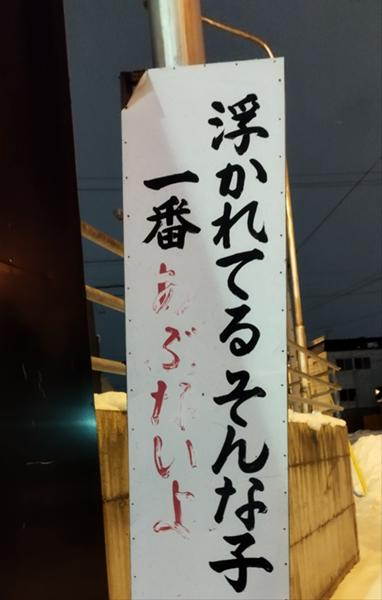 浮かれてるそんな子
一番あぶないよ